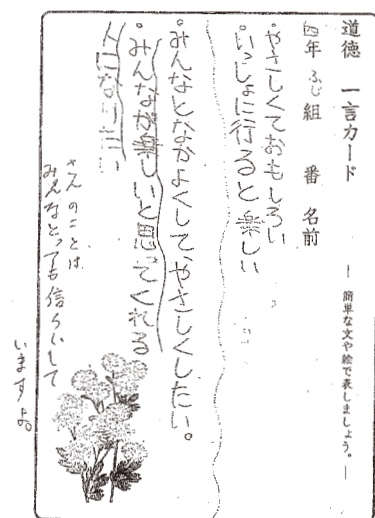 道徳 一言カード
― 簡単な文や絵で表しましょう。―
四年ふじ組 番 名前
・やさしくておもしろい
・いっしょに行ると楽しい
・みんなとなかよくしてやさしくしたい。
・みんなが楽しいと思ってくれる
人になりたい
さんのことは
みんなとっても信らいして
いますよ。